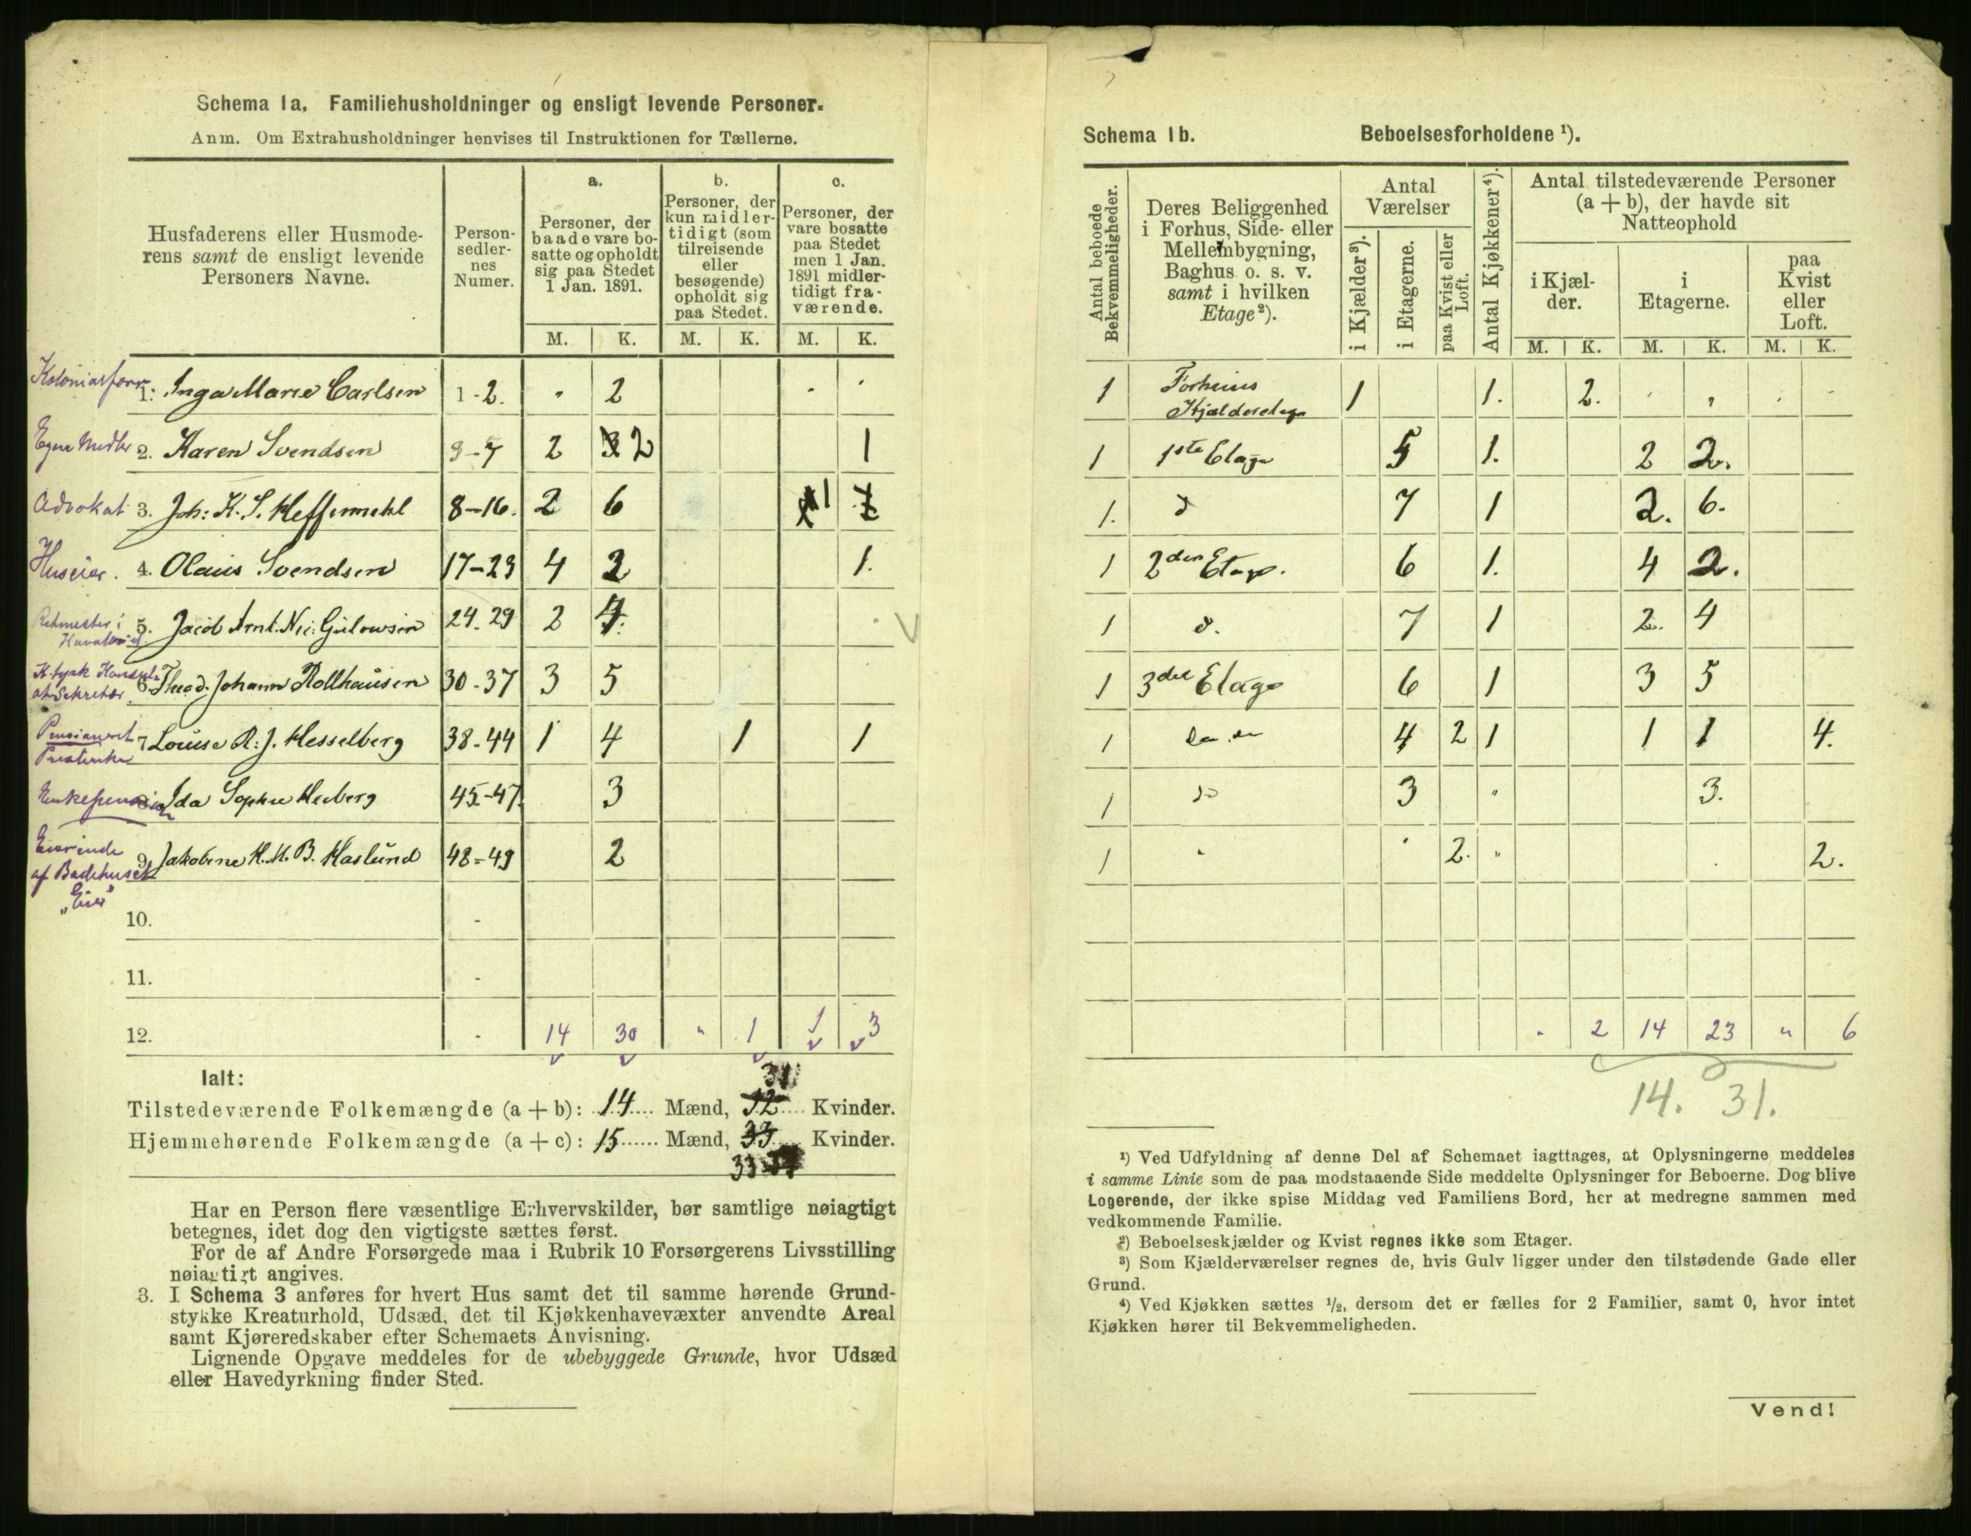 Schema 1a. Familiehusholdninger og ensligt levende Personer.
Anm. Om Extrahusholdninger henvises til Instruktionen for Tællerne.
Husfaderens eller Husmoderens samt de ensligt levende Personers Navne.
Personsedlernes Numer.
a. Personer, der baade vare bosatte og opholdt sig paa Stedet 1 Jan. 1891.
b. Personer, der kun midlertidigt (som tilreisende eller besøgende) opholdt sig paa Stedet.
c. Personer, der vare bosatte paa Stedet men 1 Jan. 1891 midlertidigt fraværende.
M. K. M. K. M. K.
1. Inga Marie Carlsen 1-2. " 2 . .
Egne Midler 2. Karen Svendsen 3-7 2 3 2 1
Advokat 3. Joh: K. S. Heffermehl 8-16. 2 6 1
Huseier. 4. Olaus Svendsen 17-23 4 2 1.
Ritmester i
5. Jacob Arnt. Nic. Gulowsen 24-29 2 4
6. Theod. Johann Rollhausen 30-37 3 5
7 Louise R. J. Hesselberg 38-44 1 4 1 1
8. Ida Sophie Heiberg 45-47. 3
Eierinde
af Badehuset
"Eier"
9. Jakobine H. M. B. Haslund 48-49 2
10. -
11. -
12. - 14 30 " 1 1 3
Ialt:
31
Tilstedeværende Folkemængde (a + b): 14 Mænd, 32 Kvinder.
Hjemmehørende Folkemængde (a + c): 15 Mænd, 33 Kvinder.
33
Har en Person flere væsentlige Erhvervskilder, bør samtlige nøiagtigt
betegnes, idet dog den vigtigste sættes først.
For de af Andre Forsørgede maa i Rubrik 10 Forsørgerens Livsstilling
nøiagtigt angives.
3. I Schema 3 anføres for hvert Hus samt det til samme hørende Grund-
stykke Kreaturhold, Udsæd, det til Kjøkkenhavevæxter anvendte Areal
samt Kjøreredskaber efter Schemaets Anvisning.
Lignende Opgave meddeles for de ubebyggede Grunde, hvor Udsæd
eller Havedyrkning finder Sted.
Schema 1b. Beboelsesforholdene ¹).
Antal beboede Bekvemmeligheder.
Deres Beliggenhed i Forhus, Side- eller Mellembygning, Baghus o. s. v. samt i hvilken Etage²).
Antal Værelser
i Kjælder³).
i Etagerne.
paa Kvist eller Loft.
Antal Kjøkkener⁴).
Antal tilstedeværende Personer (a + b), der havde sit Natteophold
i Kjælder.
i Etagerne.
paa Kvist eller Loft.
M. K. M. K. M. K.
1 Forhuus Kjælderetage 1 1. 2. . " . .
1 1ste Etage 5 1. 2 2.
1. do 7 1 2. 6.
1 2den Etage. 6 1. 4 2.
1 do. 7 1 2. 4
1 3die Etage 6 1 3 5
1 do. do 4 2 1 1 1 4.
1 do 3 " 3.
1 " 2. " 2.
" 2 14 23 " 6
14. 31.
¹) Ved Udfyldning af denne Del af Schemaet iagttages, at Oplysningerne meddeles
i samme Linie som de paa modstaaende Side meddelte Oplysninger for Beboerne. Dog blive
Logerende, der ikke spise Middag ved Familiens Bord, her at medregne sammen med
vedkommende Familie.
²) Beboelseskjælder og Kvist regnes ikke som Etager.
³) Som Kjælderværelser regnes de, hvis Gulv ligger under den tilstødende Gade eller
Grund.
⁴) Ved Kjøkken sættes ½, dersom det er fælles for 2 Familier, samt 0, hvor intet
Kjøkken hører til Bekvemmeligheden.
Vend!